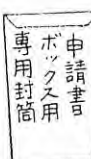 申請書
ボックス用
専用封筒